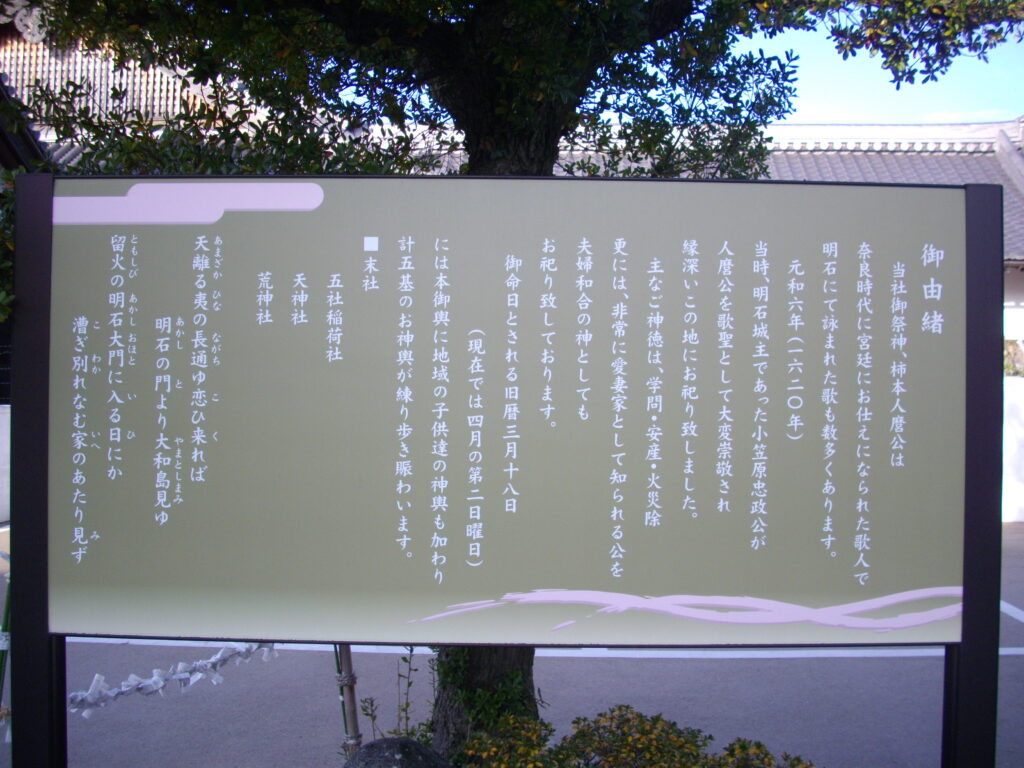 御由緒
当社御祭神、柿本人麿公は
奈良時代に宮廷にお仕えになられた歌人で
明石にて詠まれた歌も数多くあります。
元和六年(一六二〇年)
当時、明石城主であった小笠原忠政公が
人麿公を歌聖として大変崇敬され
縁深いこの地にお祀り致しました。
主なご神徳は、学問・安産・火災除
更には、非常に愛妻家として知られる公を
夫婦和合の神としても
お祀り致しております。
御命日とされる旧暦三月十八日
(現在では四月の第二日曜日)
には本御輿に地域の子供達の神輿も加わり
計五基のお神輿が練り歩き賑わいます。
■末社
五社稲荷社
天神社
荒神社
天離る夷の長通ゆ恋ひ来れば
あまざか ひな ながち こ く
明石の門より大和島見ゆ
あかし と やまとしまみ
留火の明石大門に入る日にか
ともしび あかしおほと い ひ
漕ぎ別れなむ家のあたり見ず
こ わか いへ み